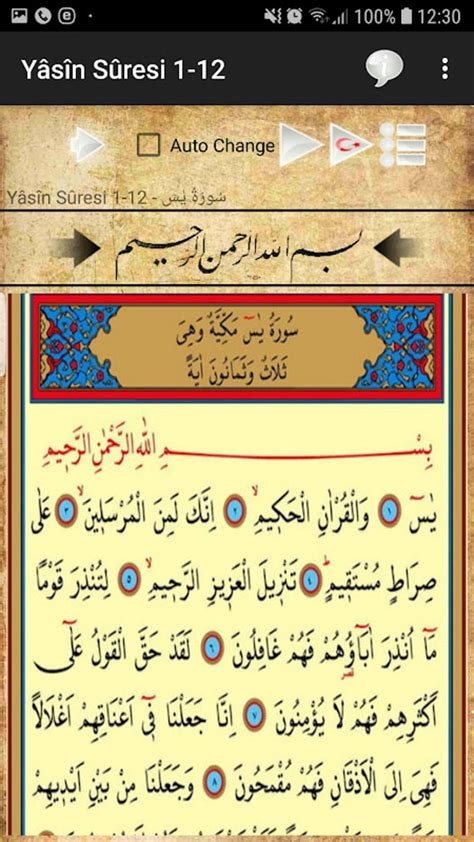 100% 12:30
Yâsîn Sûresi 1-12
Auto Change
Yâsîn Sûresi 1-12 - سُورَةُ يٰسٓ
بسم الله الرحمن الرحيم
سُورَةُ يٰسٓ مَكِّيَّةٌ وَهِىَ
ثَلَاثٌ وَثَمَانُونَ اٰيَةً
بِسْمِ اللّٰهِ الرَّحْمٰنِ الرَّحِيمِ
يٰسٓ ﴿١﴾ وَالْقُرْاٰنِ الْحَكِيمِۙ ﴿٢﴾ اِنَّكَ لَمِنَ الْمُرْسَلِينَۙ ﴿٣﴾ عَلٰى
صِرَاطٍ مُسْتَقِيمٍۜ ﴿٤﴾ تَنْزِيلَ الْعَزِيزِ الرَّحِيمِۙ ﴿٥﴾ لِتُنْذِرَ قَوْمًا
مَٓا اُنْذِرَ اٰبَٓاؤُهُمْ فَهُمْ غَافِلُونَ ﴿٦﴾ لَقَدْ حَقَّ الْقَوْلُ عَلٰٓى
اَكْثَرِهِمْ فَهُمْ لَا يُؤْمِنُونَ ﴿٧﴾ اِنَّا جَعَلْنَا فٓى اَعْنَاقِهِمْ اَغْلَالًا
فَهِىَ اِلَى الْاَذْقَانِ فَهُمْ مُقْمَحُونَ ﴿٨﴾ وَجَعَلْنَا مِنْ بَيْنِ اَيْدِيهِمْ